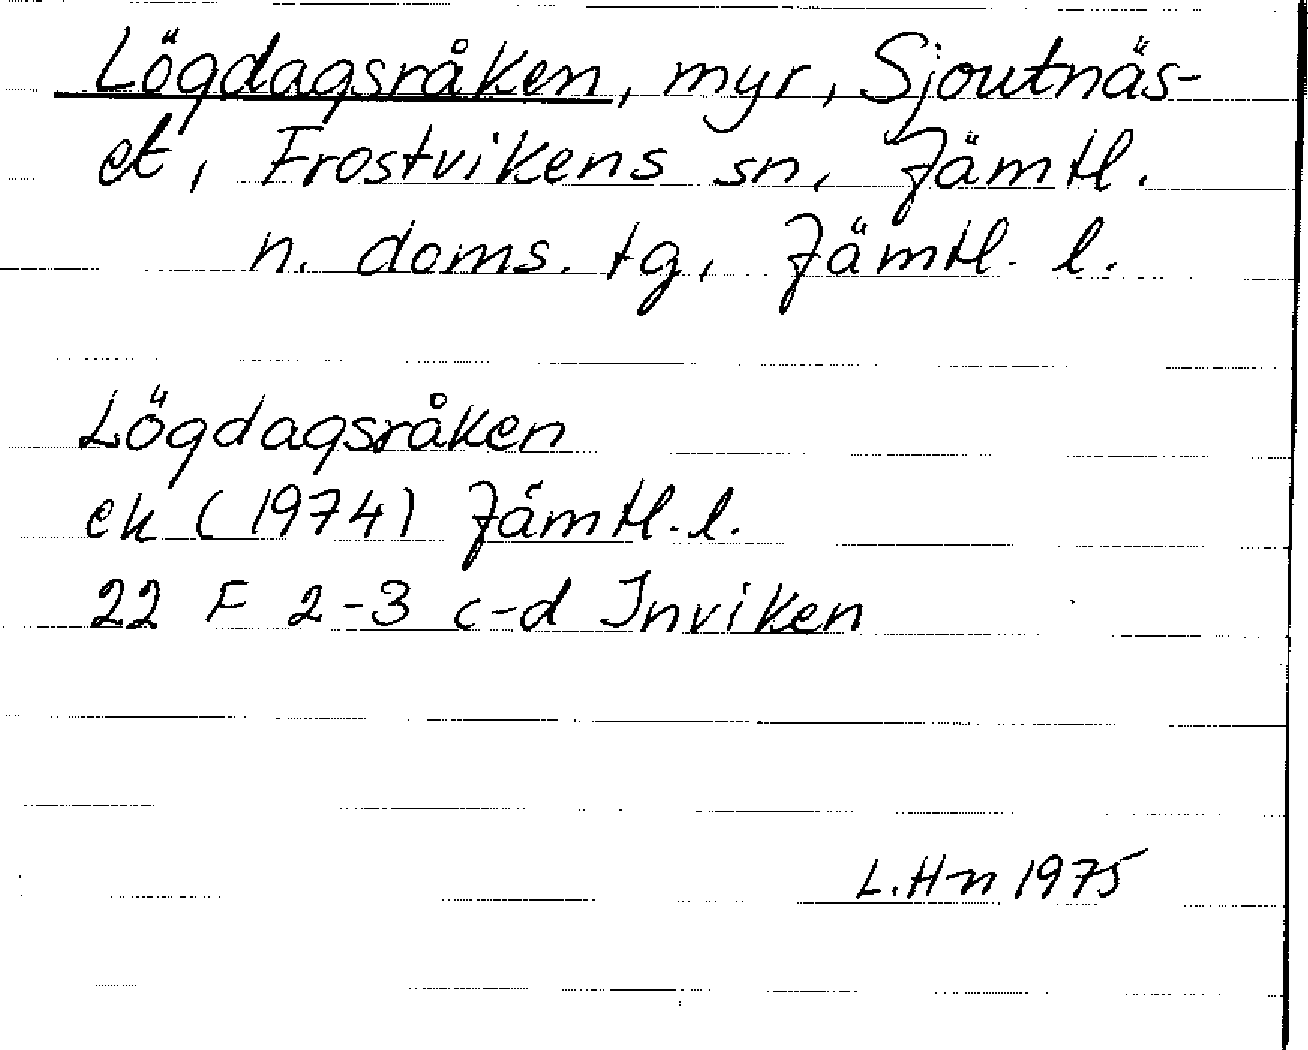 Lögdagsråken, myr, Sjoutnäs-
et, Frostvikens sn, Jämtl.
n. doms. tg, Jämtl. l.
Lögdagsråken
ek (1974) Jämtl. l.
22 F 2-3 c-d Inviken
L. Hn 1975